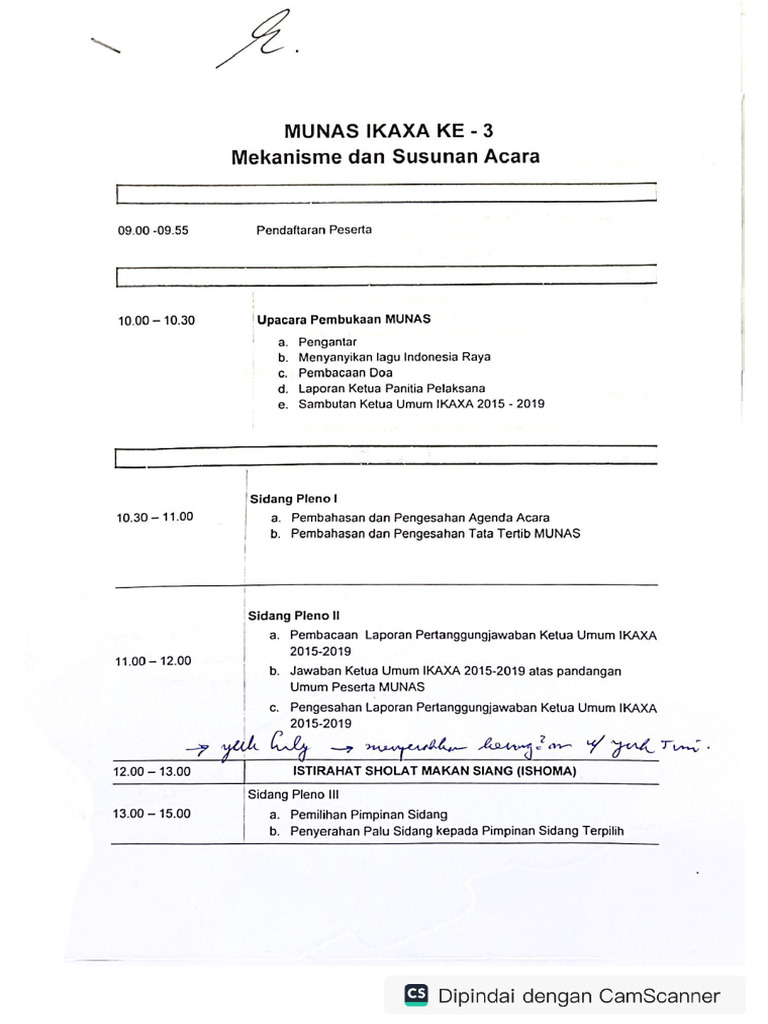 MUNAS IKAXA KE - 3
Mekanisme dan Susunan Acara
09.00 -09.55 Pendaftaran Peserta
10.00 – 10.30 Upacara Pembukaan MUNAS
a. Pengantar
b. Menyanyikan lagu Indonesia Raya
c. Pembacaan Doa
d. Laporan Ketua Panitia Pelaksana
e. Sambutan Ketua Umum IKAXA 2015 - 2019
Sidang Pleno I
10.30 – 11.00 a. Pembahasan dan Pengesahan Agenda Acara
b. Pembahasan dan Pengesahan Tata Tertib MUNAS
Sidang Pleno II
a. Pembacaan Laporan Pertanggungjawaban Ketua Umum IKAXA
2015-2019
11.00 – 12.00
b. Jawaban Ketua Umum IKAXA 2015-2019 atas pandangan
Umum Peserta MUNAS
c. Pengesahan Laporan Pertanggungjawaban Ketua Umum IKAXA
2015-2019
→ → menyerahkan
12.00 – 13.00 ISTIRAHAT SHOLAT MAKAN SIANG (ISHOMA)
Sidang Pleno III
13.00 – 15.00 a. Pemilihan Pimpinan Sidang
b. Penyerahan Palu Sidang kepada Pimpinan Sidang Terpilih
CS Dipindai dengan CamScanner